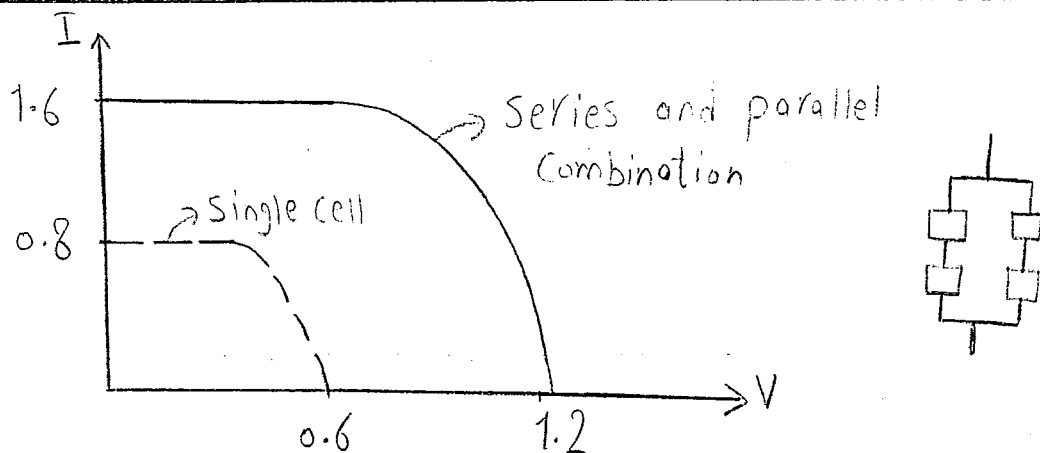 I
1.6
Series and parallel
Combination
Single cell
0.8
V
0.6
1.2